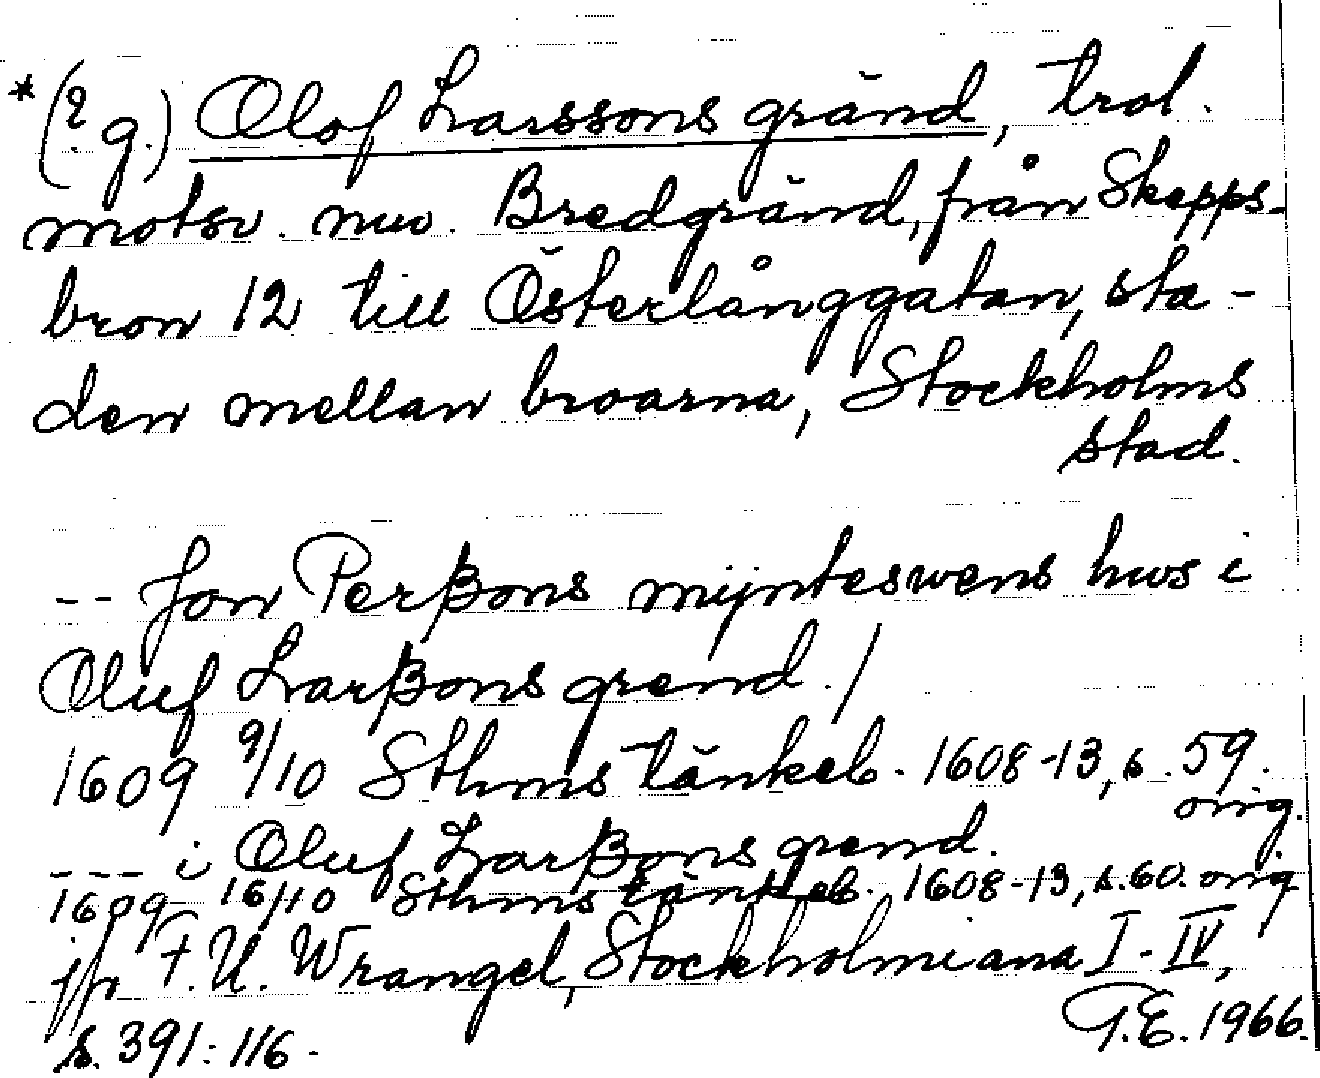 *(? g.) Olof Larssons gränd, trol.
motsv. nuv. Bredgränd, från Skepps-
bron 12 till Österlånggatan, sta-
den mellan broarna, Stockholms
stad.
-- Jon Perßons mÿnteswens hws i
Oluf Larßons grend./
1609 9/10 Sthms tänkeb. 1608-13, s. 59.
orig.
--- i Oluf Larßons grend.
1609 16/10 Sthms tänkeb. 1608-13, s. 60. orig
jfr F. U. Wrangel, Stockholmiana I-IV,
s. 391: 116.
G.E. 1966.